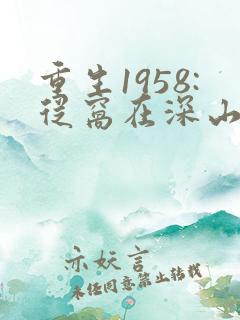 重生1958:
从窝在深山
亦妖言
未经同意禁止转载